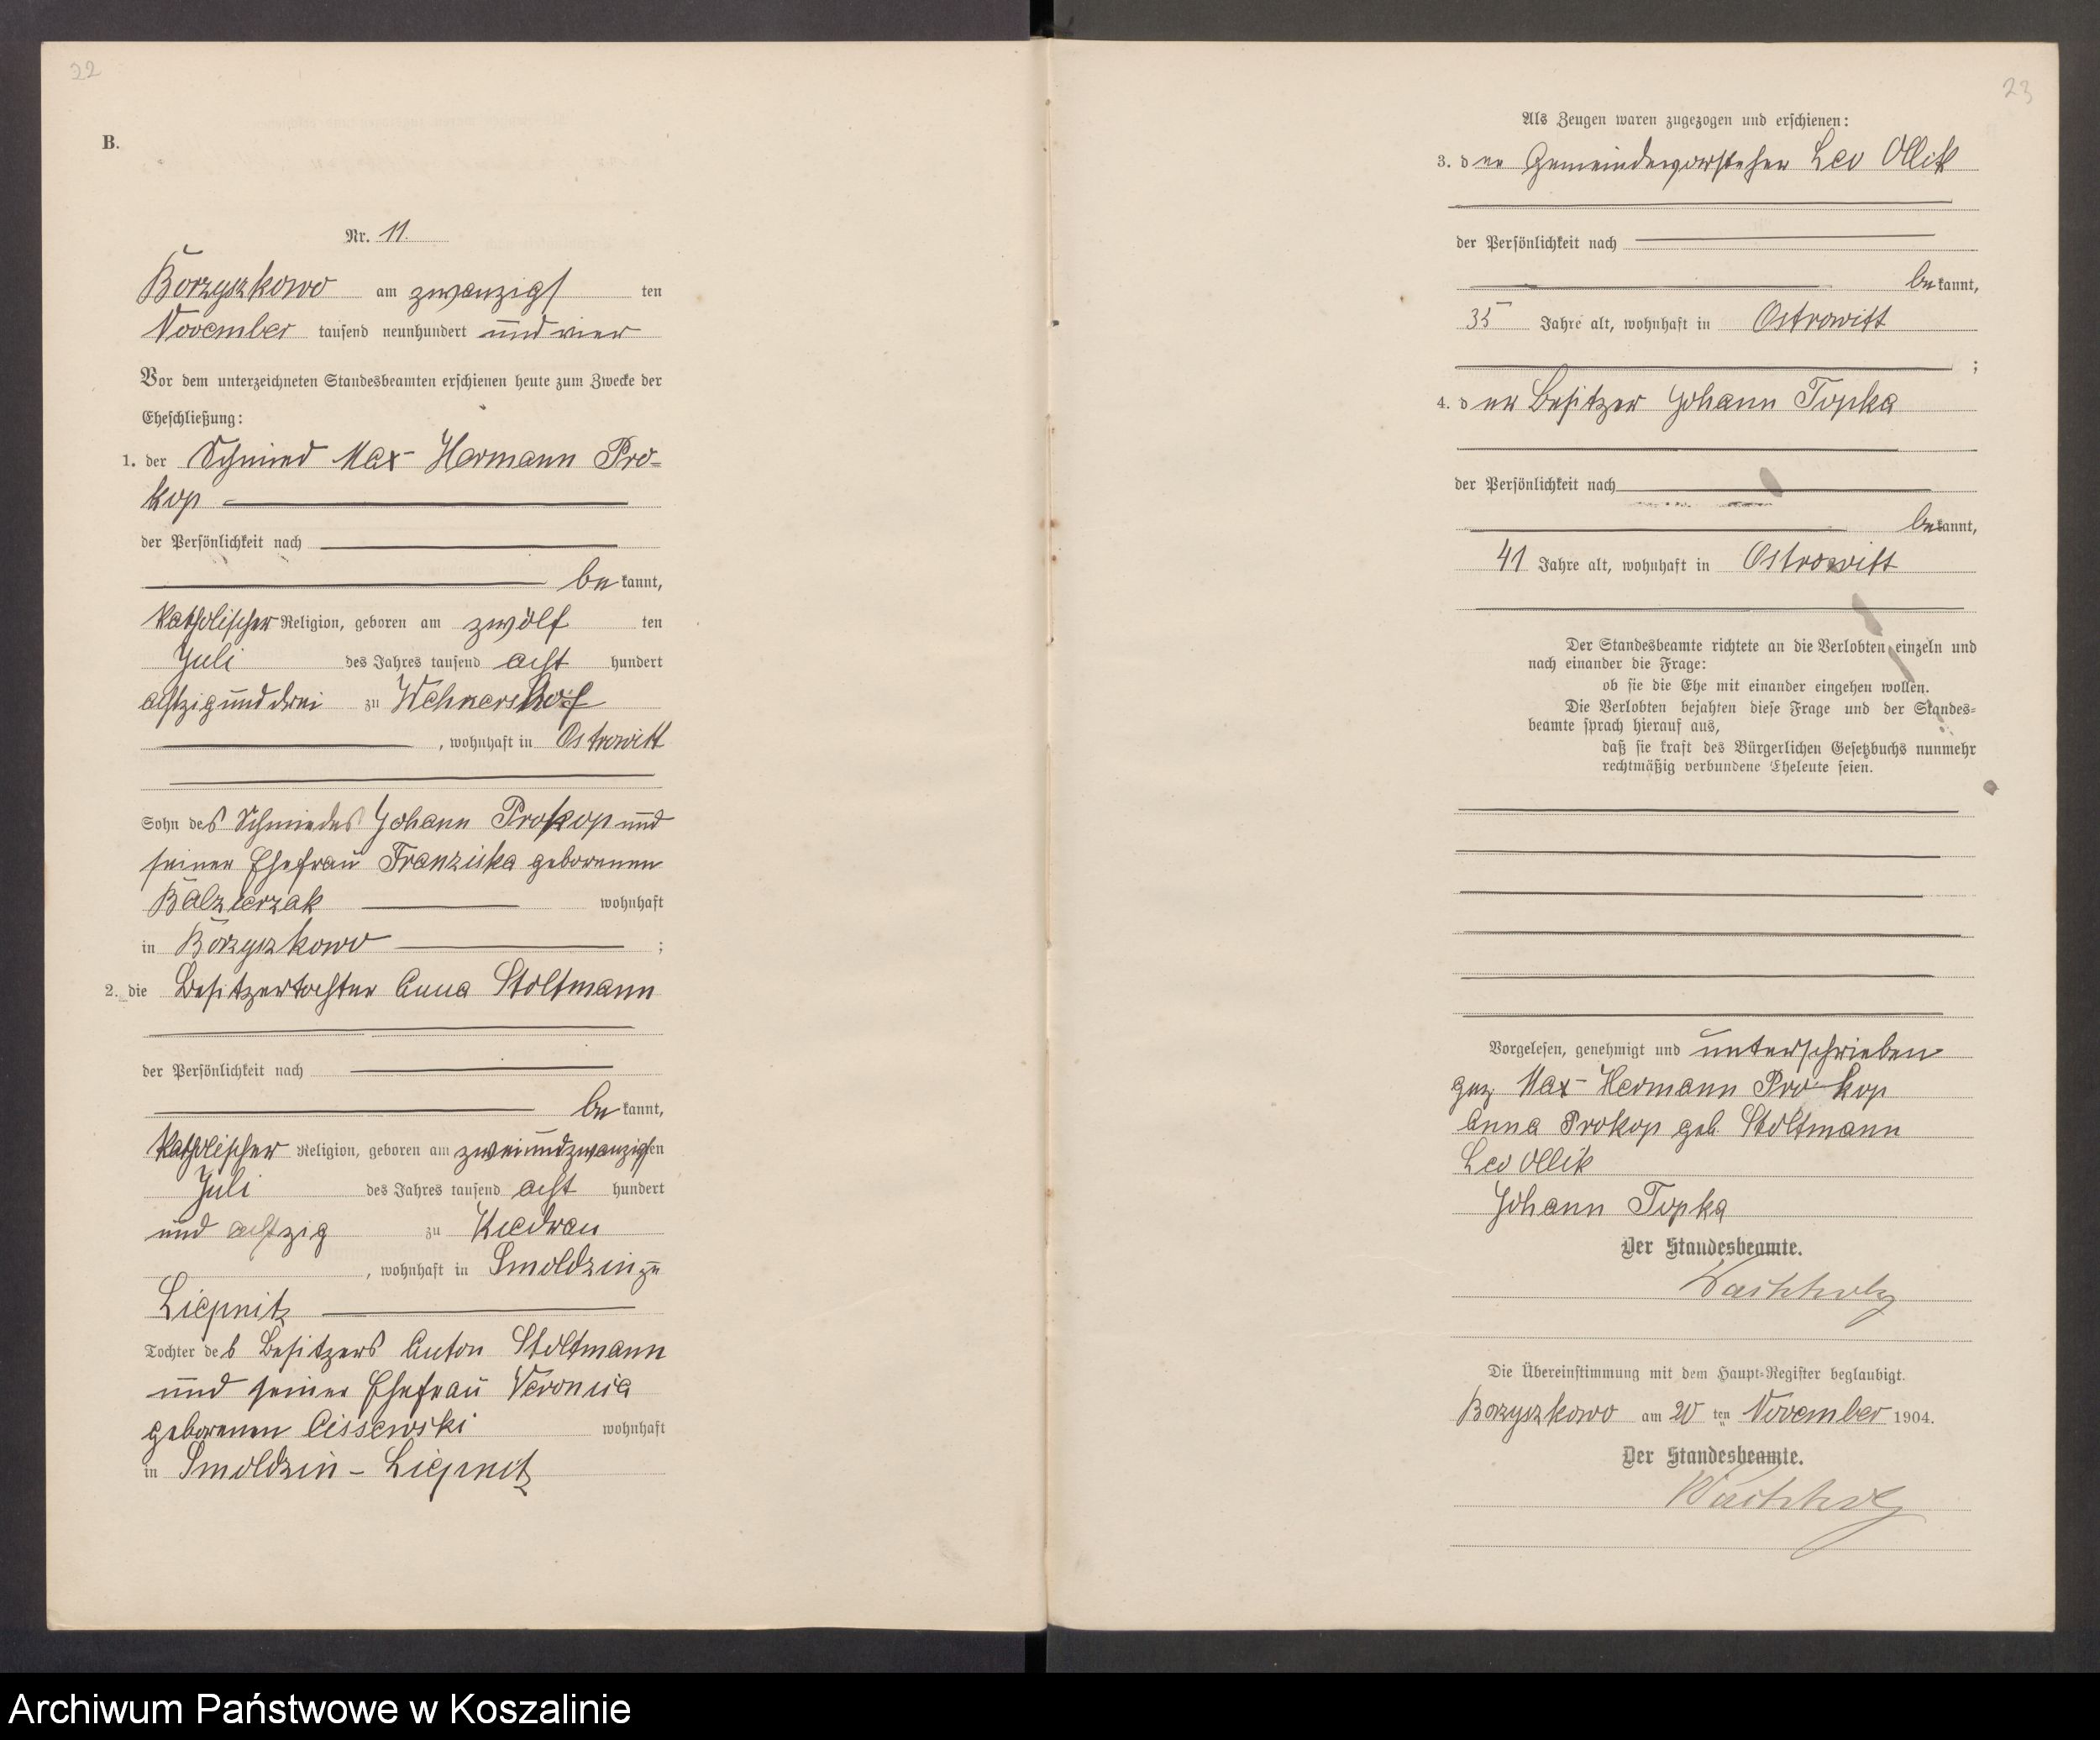 22
B.
Nr. 11.
Borzyszkowo am zwanzigsten
November tausend neunhundert und vier
Vor dem unterzeichneten Standesbeamten erschienen heute zum Zwecke der
Eheschließung:
1. der Schmied Max Hermann Pro=
kop
der Persönlichkeit nach
be kannt,
katholischer Religion, geboren am zwölf ten
Juli des Jahres tausend acht hundert
achtzig und drei zu Wehnershof
, wohnhaft in Ostrowitt
Sohn des Schmiedes Johann Prokop und
seiner Ehefrau Franziska geborenen
Balzierzak wohnhaft
in Borzyszkowo ;
2. die Besitzertochter Anna Stoltmann
der Persönlichkeit nach
be kannt,
katholischer Religion, geboren am zweiundzwanzigsten
Juli des Jahres tausend acht hundert
und achtzig zu Kiedrau
, wohnhaft in Smoldzin zu
Liepnitz
Tochter des Besitzers Anton Stoltmann
und seiner Ehefrau Veronica
geborenen Cissewski wohnhaft
in Smoldzin - Liepnitz
23
Als Zeugen waren zugezogen und erschienen:
3. der Gemeindevorsteher Leo Ollik
der Persönlichkeit nach
be kannt,
35 Jahre alt, wohnhaft in Ostrowitt
;
4. der Besitzer Johann Topka
der Persönlichkeit nach
be kannt,
41 Jahre alt, wohnhaft in Ostrowitt
Der Standesbeamte richtete an die Verlobten einzeln und
nach einander die Frage:
ob sie die Ehe mit einander eingehen wollen.
Die Verlobten bejahten diese Frage und der Standes=
beamte sprach hierauf aus,
daß sie kraft des Bürgerlichen Gesetzbuchs nunmehr
rechtmäßig verbundene Eheleute seien.
Vorgelesen, genehmigt und unterschrieben
gez. Max Hermann Prokop
Anna Prokop geb. Stoltmann
Leo Ollik
Johann Topka
Der Standesbeamte.
Wachholz
Die Übereinstimmung mit dem Haupt=Register beglaubigt.
Borzyszkowo am 20 ten November 1904.
Der Standesbeamte.
Wachholz
Archiwum Państwowe w Koszalinie